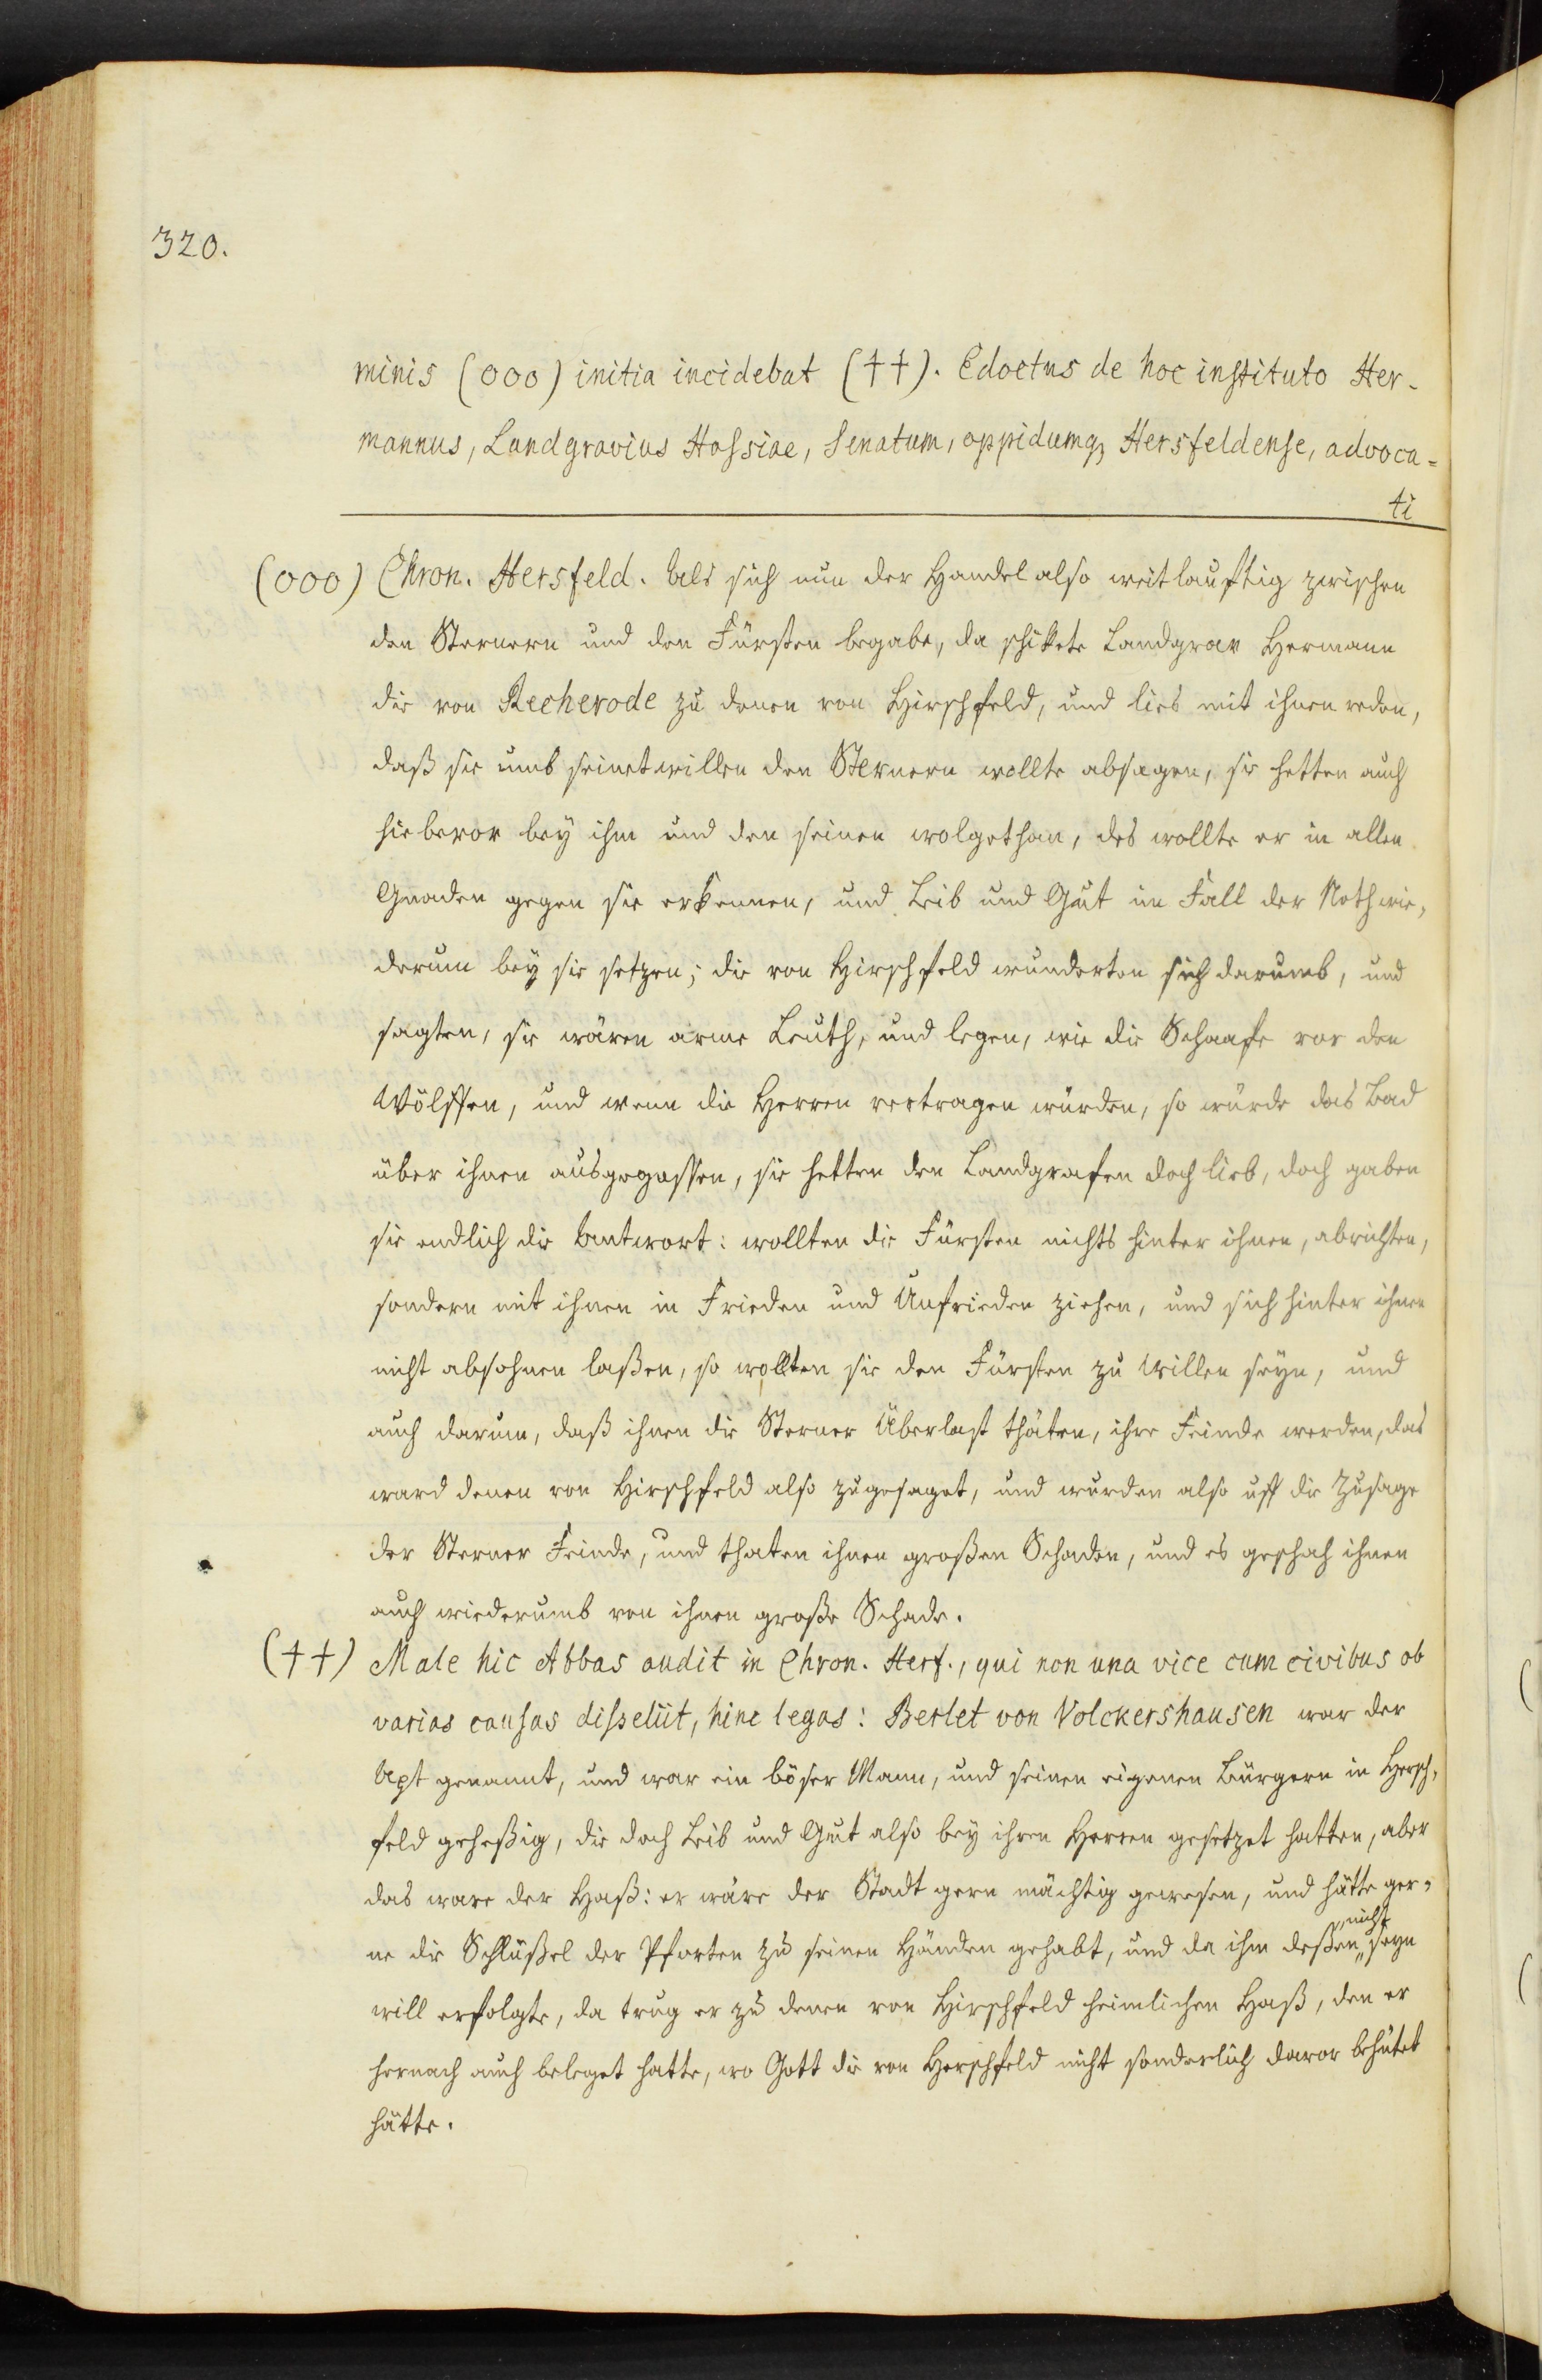 320.
minis (000) initia incidebat (††). Edoctus de hoc instituto Her-
mannus, Landgravius Hassiae, Senatum, oppidumq3 Hersfeldense, advoca=
ti
(000) Chron. Hersfeld. Als sich nun der Handel also weitlauftig zwischen
den Sternern und den Fürsten begabe, da schikete Landgrav Hermann
die von Recherode zu denen von Hirschfeld, und lies mit ihnen reden,
daß sie umb seinetwillen den Sternern wollte absagen, sie hetten auch
hiebevor bey ihm und den seinen wolgethan, des wollte er in allen
Gnaden gegen sie erkennen, und Leib und Gut im Fall der Noth wie,
derum bey sie setzen; die von Hirschfeld wunderten sich darumb, und
sagten, sie wären arme Leuth, und legen, wie die Schaafe vor den
Wölffen, und wenn die Herren vertragen würden, so würde das Bad
über ihnen ausgegossen, sie hetten den Landgrafen doch lieb, doch gaben
sie endlich die Antwort: wollten die Fürsten nichts hinter ihnen, abrichten,
sondern mit ihnen in Frieden und Unfrieden ziehen, und sich hinter ihnen
nicht absohnen laßen, so wollten sie den Fürsten zu Willen seyn, und
auch darum, daß ihnen die Sterner Überlast thäten, ihre Feinde werden, das
ward denen von Hirschfeld also zugesaget, und wurden also uff die Zusage
der Sterner Feinde, und thaten ihnen großen Schaden, und es geschah ihnen
auch wiederumb von ihnen große Schade.
(††) Male hic Abbas audit in Chron. Herf., qui non una vice cum civibus ob
varias causas disseliit, hinc legas: Berlet von Volckershausen war der
Apt genannt, und war ein böser Mann, und seinen eigenen Bürgern in Hersch,
feld geheßig, die doch Leib und Gut also bey ihren Herren gesetzet hatten, aber
das ware der Haß: er wäre der Stadt gern mächtig gewesen, und hätte ger,
ne die Schlüßel der Pforten zu seinen Händen gehabt, und da ihm deßen „nicht„ seyn
will erfolgte, da trug er zu denen von Hirschfeld heimlichen Haß, den er
hernach auch beleget hatte, wo Gott die von Herschfeld nicht sonderlich davor behütet
hätte.